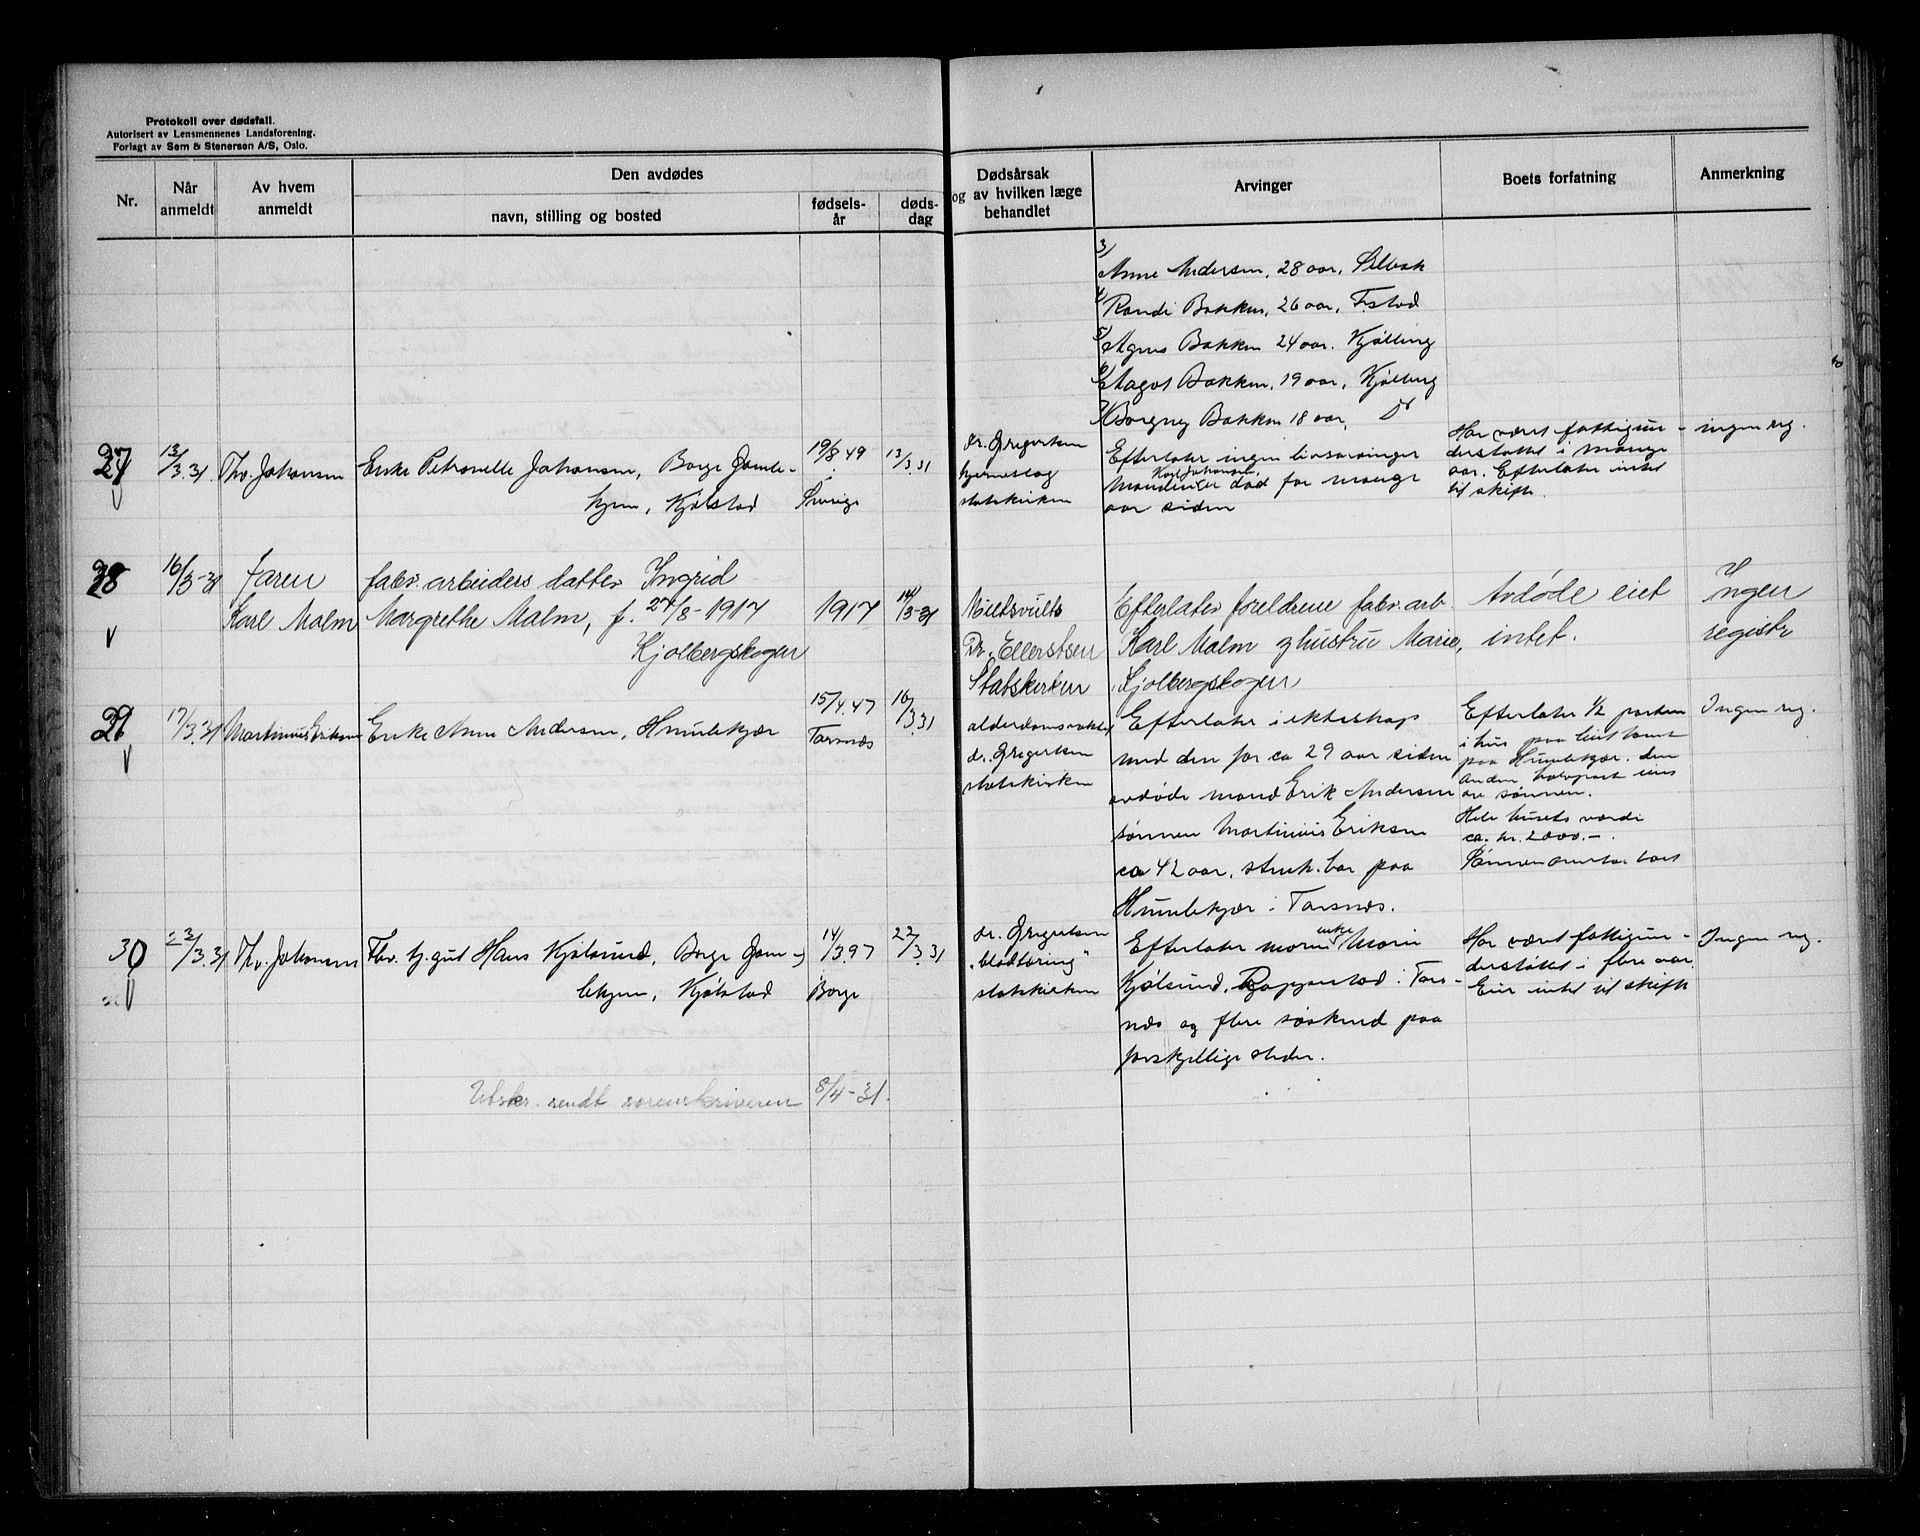 Protokoll over dødsfall.
Autorisert av Lensmennenes Landsforening.
Forlagt av Sem & Stenersen A/S, Oslo.
Nr.
Når anmeldt
Av hvem anmeldt
Den avdødes
navn, stilling og bosted
fødsels-år
døds-dag
Dødsårsak og av hvilken læge behandlet
Arvinger
Boets forfatning
Anmerkning
3) Anne Andersen, 28 aar, Selbak
4) Randi Bakken, 26 aar, F.stad
5) Agnes Bakken 24 aar. Kjølberg
6) Aagot Bakken, 19 aar, Kjølberg
7) Borgny Bakken 18 aar, Do
27
13/3.31
Thv. Johansen
Enke Petronelle Johansen, Borge Gamle-
hjem, Kjølstad
19/8 49
Sverige
13/3.31
dr. Gregertsen
hjerneslag
statskirken
Efterlater ingen livsarvinger
Manden Karl Johansen er død for mange
aar siden
Har været fattigun-
derstøttet i mange
aar. Efterlater intet
til skifte.
ingen reg.
28
16/3-31
Faren
Karl Malm
fabr. arbeiders datter Ingrid
Margrethe Malm, f. 27/8-1917
Kjølbergskogen
1917
14/3-31
Dr. Ellertsen
Statskirken
Efterlater foreldrene fabr. arb
Karl Malm og hustru Marie,
Kjølbergskogen
Avdøde eiet
intet.
Ingen
registr
29
17/3.31
Martinius Eriksen
Enke Anne Andersen, Humlekjær
15/4.47
Torsnæs
16/3.31
alderdomssvakhet
dr. Gregertsen
statskirken
Efterlater i ekteskap
med den for ca 29 aar siden
avdøde mand Erik Andersen
sønnen Martinius Eriksen
ca 42 aar, stenh. bor paa
Humlekjær i Torsnæs.
Efterlater 1/2 parten
i hus paa leiet tomt
paa Humlekjær. den
anden halvpart eies
av sønnen.
Hele husets værdi
ca. kr. 2000.-
Sønnen overtar boet
Ingen reg.
30
23/3.31
Thv. Johansen
Fhv. tj. gut Hans Kjølsund, Borge Gam-
lehjem, Kjølstad
14/3 97
Borge
22/3 31
dr. Gregertsen
"blodtæring"
statskirken
Efterlater moren enke Marie
Kjølsund, Roppestad i Tors-
næs og flere søskend paa
forskjellige steder.
Har været fattigun-
derstøttet i flere aar.
Eier intet til skifte
Ingen reg.
Utskr. sendt sorenskriveren 8/4-31.